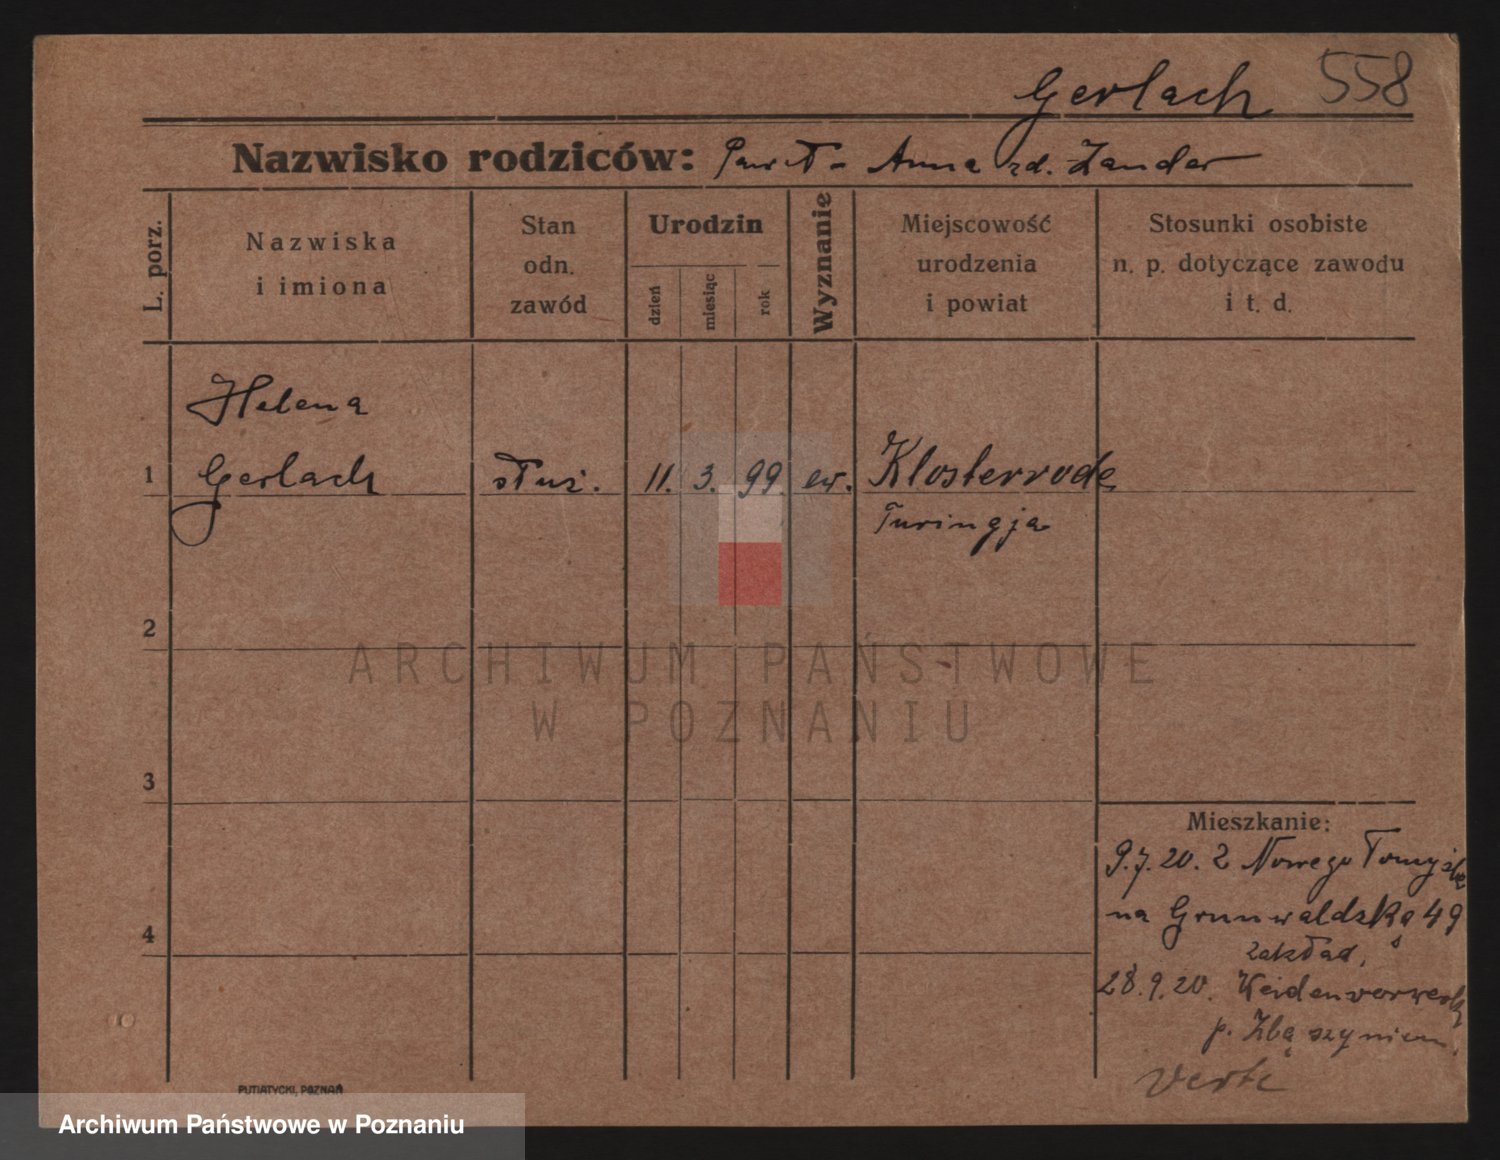 Gerlach 558
Nazwisko rodziców: Paweł - Anna zd. Zander
L. porz.
Nazwiska
i imiona
Stan
odn.
zawód
Urodzin
dzień
miesiąc
rok
Wyznanie
Miejscowość
urodzenia
i powiat
Stosunki osobiste
n. p. dotyczące zawodu
i t. d.
Helena
1 Gerlach służ. 11. 3. 99 ew. Klosterrode
Turingja
2
ARCHIWUM PAŃSTWOWE
W POZNANIU
3
Mieszkanie:
9.7.20. z Nowego Tomyśla
4 na Grunwaldzką 49
zakład,
28.9.20.
p. Zbąszyniem.
verte
PUTIATYCKI, POZNAŃ
Archiwum Państwowe w Poznaniu